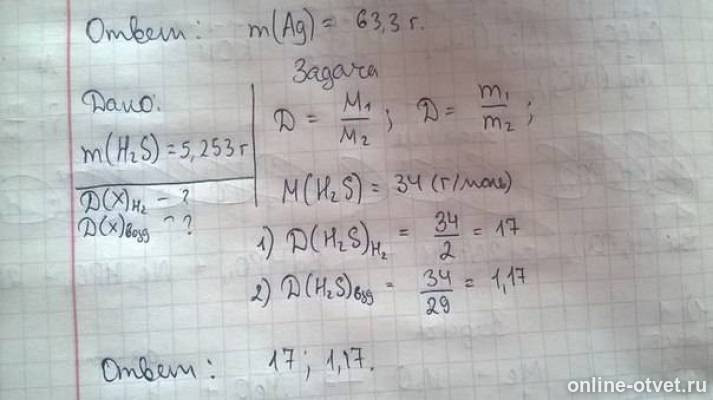 Ответ: m(Ag) = 63,3 г.
Задача
Дано:
m(H₂S) = 5,253 г
D(X)H₂ - ?
D(X)возд - ?
D = M₁/M₂; D = m₁/m₂;
M(H₂S) = 34 (г/моль)
1) D(H₂S)H₂ = 34/2 = 17
2) D(H₂S)возд = 34/29 = 1,17
Ответ: 17; 1,17.
online-otvet.ru